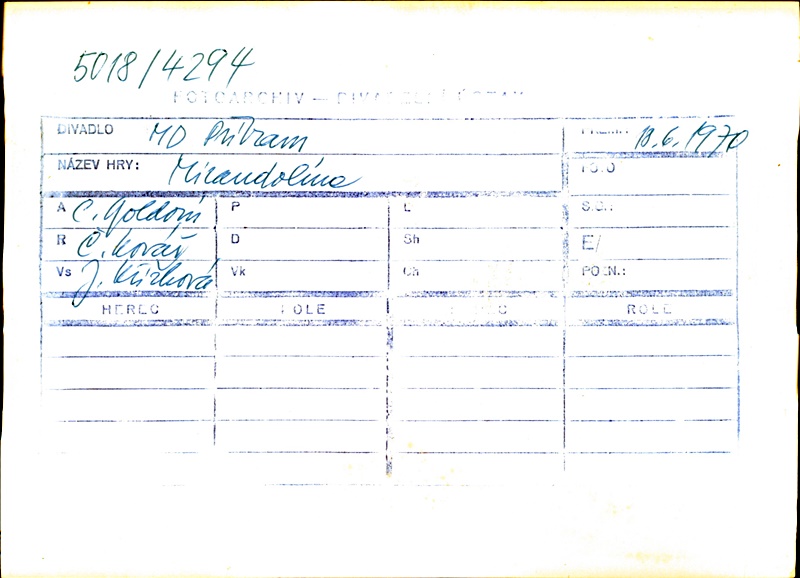 5018/4294
FOTOARCHIV — DIVADELNÍ ÚSTAV
DIVADLO MD Příbram PREM.: 18.6.1970
NÁZEV HRY: Mirandolína
A C. Goldoni P L S.G.:
R Č. Kovář D Sh E/
Vs J. Křížková Vk Ch POZN.:
HEREC ROLE HEREC ROLE